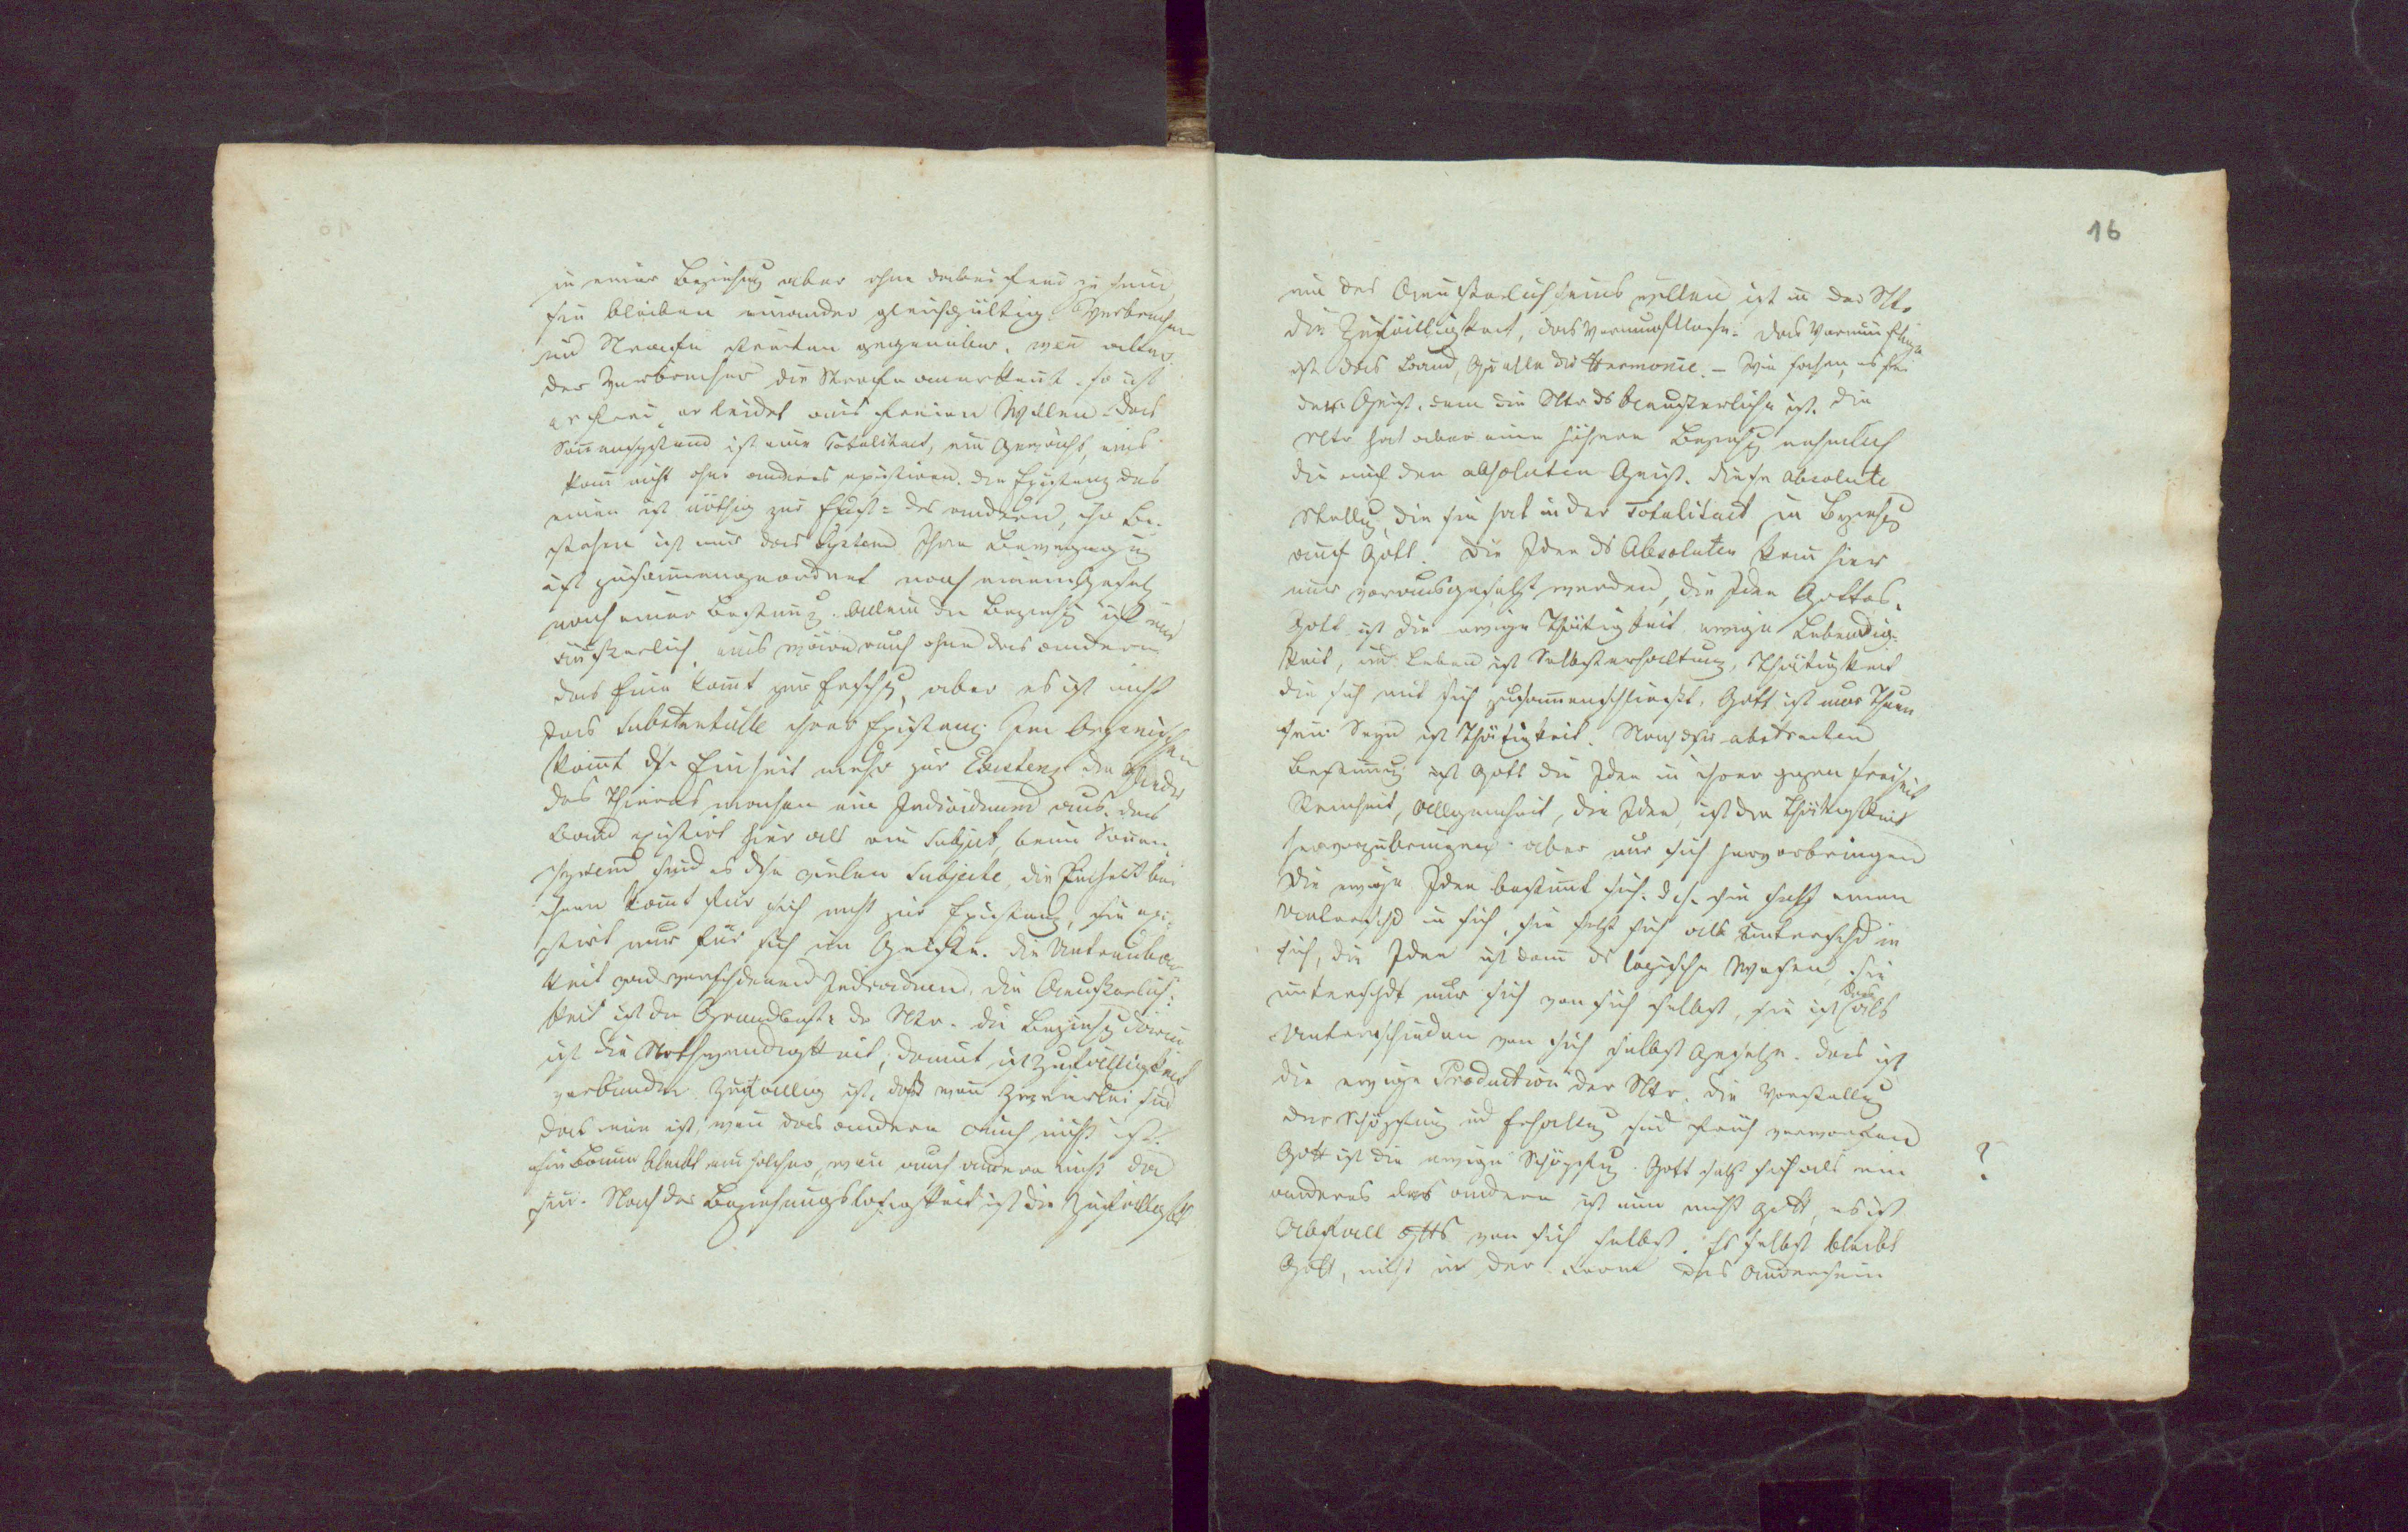 in einer Beziehung aber ohne dabei frei zu sein
sie bleiben einander gleichgültig. Verbrechen
und Strafe stehen gegenüber, weñ aber
der Verbrecher die Strafe anerkeñt, so ist
er frei, er leidet aus freien Willen. Das
Soñensystem ist eine Totalitaet, ein Ganzes, eins
kañ nicht ohne anderes existiren. die Existenz des
einen ist nöthig zur Exist= des andern, ihr Be-
stehen ist nur das System. Ihre Bewegung
ist zusam̃engeordnet nach einem Gesetz
nach einer Bestim̃g. Allein die Beziehg ist nur
äußerlich, eins wäre auch ohne das andere
das Eine kom̃t zur Ersch, aber es ist nicht
das Substantielle ihrer Existenz. Im Organischen
kom̃t dse Einheit mehr zur Existenz die Glieder
des Thieres machen ein Individuum aus. das
Band existirt hier als ein Subject, beim Soñen
system sind es dse vielen Subjecte, die Einheit bei
ihnen kom̃t für sich nicht zur Existenz, sie exi-
stirt nur für sich im Geiste. die Untrennbar
keit von verschdenen Individuen. Die Aeußerlich:
keit ist die Grundbest= der Ntr. die Beziehg darin
ist die Nothwendigkeit, damit ist Zufälligkeit
verbunden. Zufaellig ist, daß weñ Zweierlei sind
das eine ist, weñ das andere auch nicht ist.
Ein Baum bleibt ein solcher, weñ auch andere nicht da
sein. Nach der Beziehungslosigkeit ist die Zufälligkt
16
um des Aeußerlichseins willen ist in der Ntr
die Zufälligkeit, das Vernunftlose. Das Vernünftige
ist das Band, Quelle der Harmonie. – Wir sahen, es sei
der Geist, dem die Ntr ds Aeußerliche ist. die
Ntr hat aber eine höhere Beziehg nehmlich
die auf den absoluten Geist. diese absolute
Stellg, die sie hat in der Totalitaet, in Beziehg
auf Gott. Die Idee ds Absoluten kañ hier
nur vorausgesetzt werden, die Idee Gottes.
Gott ist die ewige Thätigkeit, ewige Lebendig-
keit, und Leben ist Selbsterhaltung, Thätigkeit
die sich mit sich zusam̃enschließt. Gott ist nur Thun
sein Seyn ist Thätigkeit. Nach dser abstracten
Bestim̃ung ist Gott die Idee in ihrer ganzen Freiheit
Reinheit, Allgemeinheit, die Idee, ist die Thätigkeit
hervorzubringen aber nur sich hervorbringen
Die ewige Idee bestim̃t sich. d.h. sie setzt einen
Unterschd in sich, sie setzt sich als Unterschd in
sich, die Idee ist dañ ds logische Wesen, sie
unterschdt nur sich von sich selbst, sie ist als
Unterschieden von sich selbst Gesetzte. das ist
die ewige Production der Ntr. die Vorstellug
der Schöpfung und Erhaltug sind verworfen
Gott ist die ewige Schöpfug. Gott setzt sich als ein
anderes das andere ist nun nicht Gott, es ist
Abfall Gtts von sich selbst. Es selbst bleibt
Gott, nicht in der Form des Andersein
?